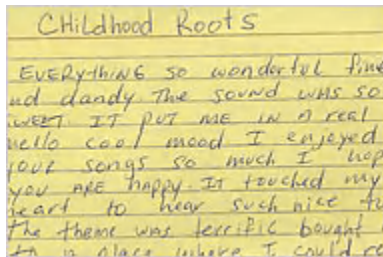 CHildhood Roots
EVERythiNG so wonderful fine
nd dandy The sound was so
swEET IT PUT ME IN A real
mello cool mood I enjoyed
your songs so much I hop
you ARE happy. It touched my
heart to hear such nice tu
The theme was terrific bought
to a place where I could re